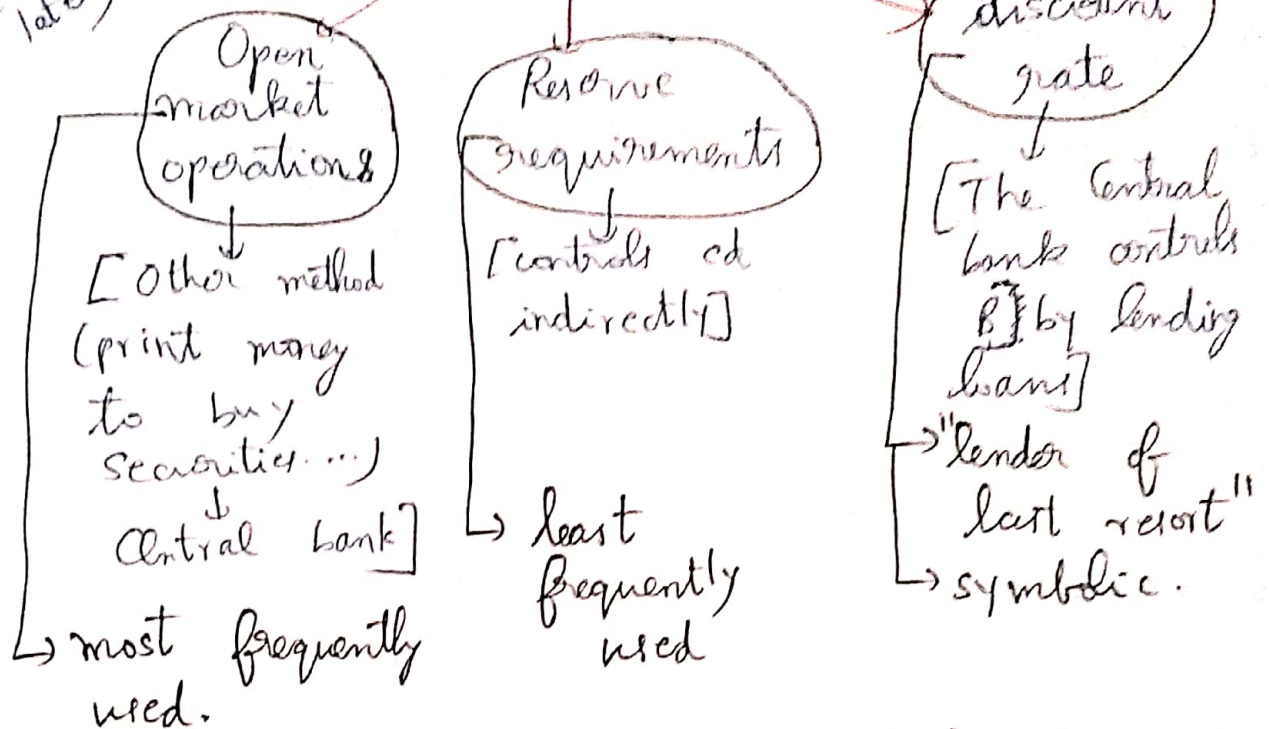 late)
Open
market
operations
[Other method
(print money
to buy
securities....)
↓
Central bank]
→ most frequently
used.
Reserve
requirements
[controls cd
indirectly]
→ least
frequently
used
discount
rate
[The Central
bank controls
B] by lending
loans]
→ "lender of
last resort"
→ symbolic.